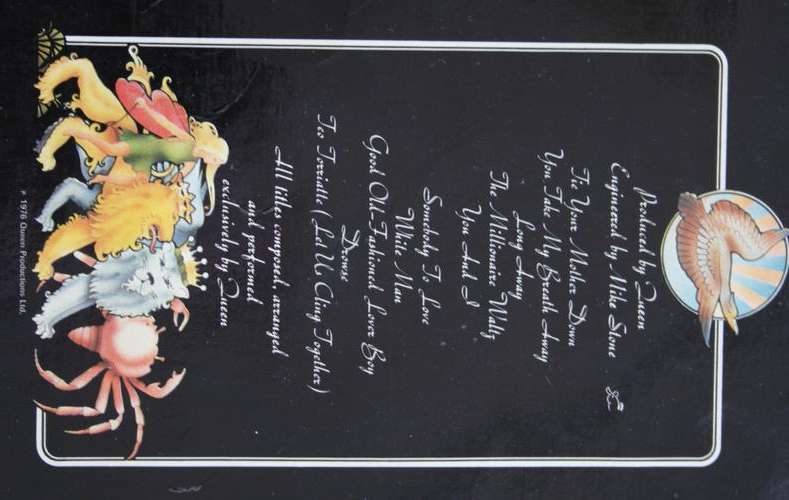 Produced by Queen
Engineered by Mike Stone
Tie Your Mother Down
You Take My Breath Away
Long Away
The Millionaire Waltz
You And I
Somebody To Love
White Man
Good Old-Fashioned Lover Boy
Drowse
Teo Torriatte ( Let Us Cling Together )
All titles composed, arranged
and performed
exclusively by Queen
℗ 1976 Queen Productions Ltd.